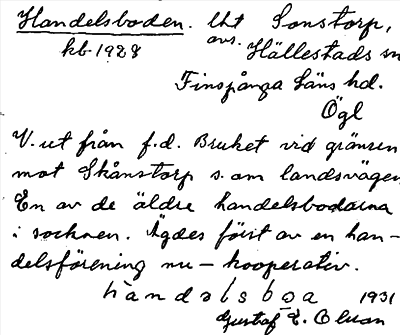 Handelsboden. lht Sonstorp,
kb. 1928 avs. Hällestads sn
Finspånga läns hd.
Ögl
V. ut från f.d. Bruket vid gränsen
mot Skånstorp s. om landsvägen
En av de äldre handelsbodarna
i socknen. Ägdes först av en han-
delsförening nu – kooperativ.
hàndəlsboa 1931
Gustaf E. Olsson